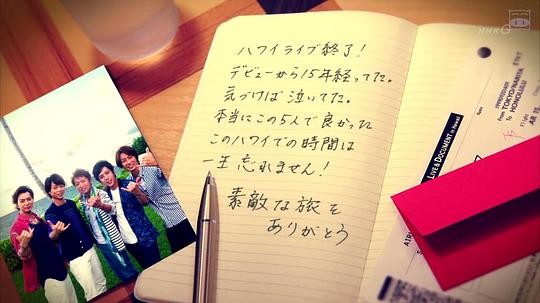 NHK G
ハワイライブ終了！
デビューから15年経ってた。
気づけば泣いてた。
本当にこの5人で良かった
このハワイでの時間は
一生忘れません！
素敵な旅を
ありがとう
LIVE & DOCUMENT in Hawaii
From TOKYO/NARITA
To HONOLULU